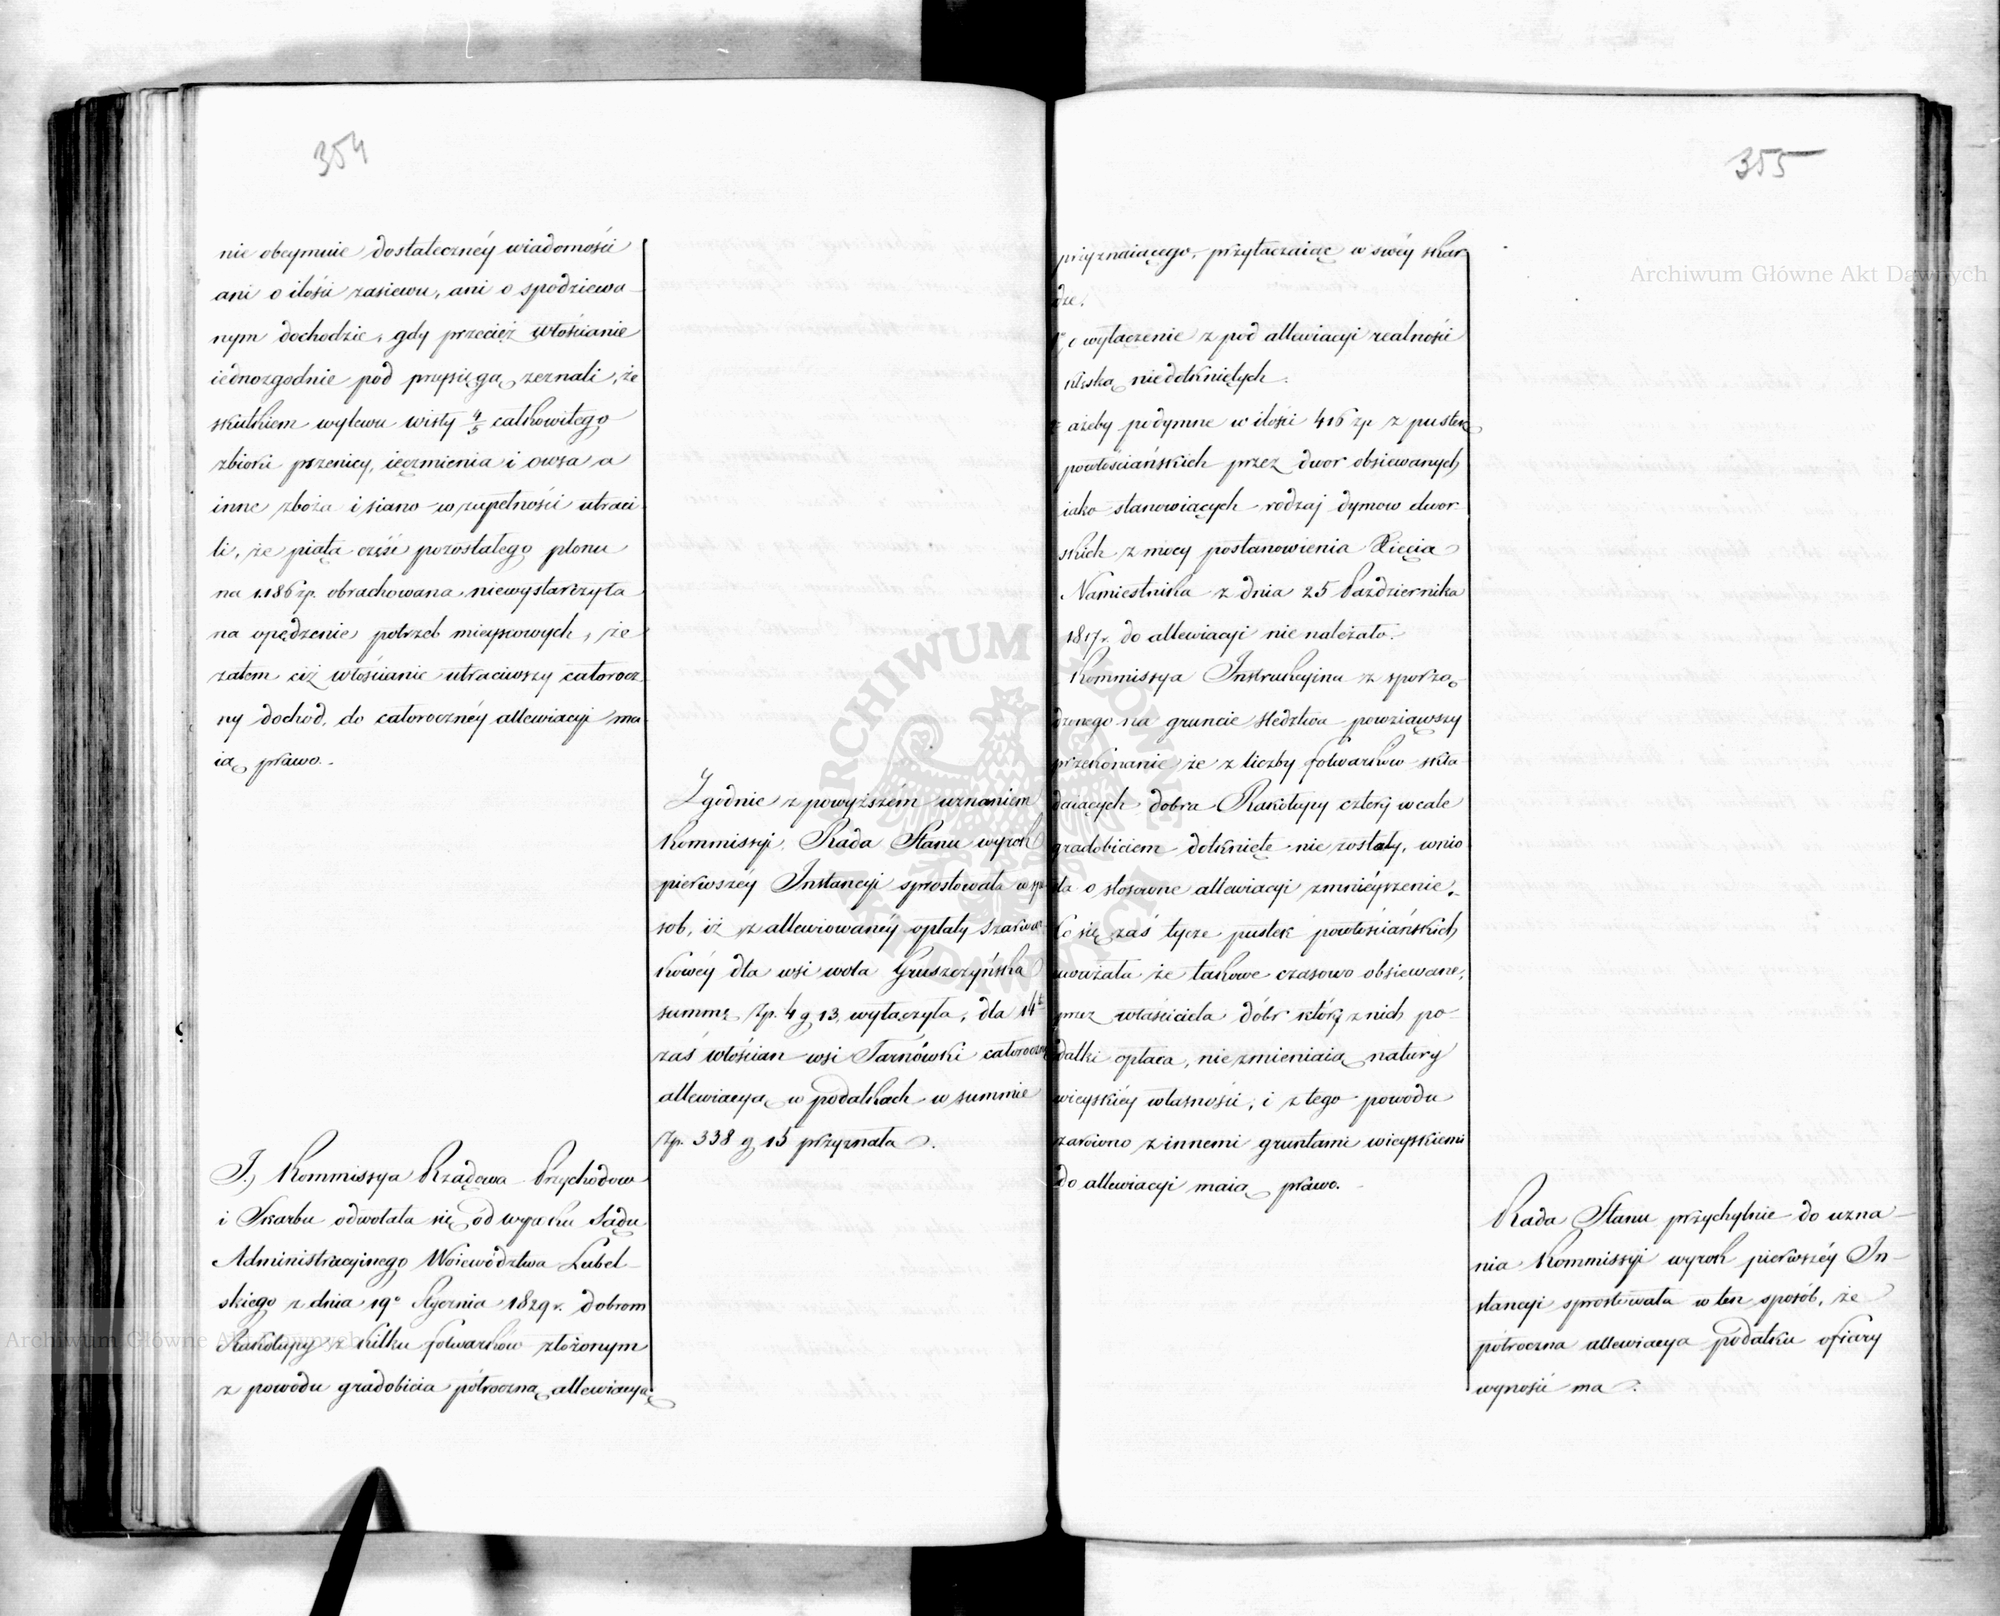 354
nie obeymuie dostatecznéy wiadomości
ani o ilości zasiewu, ani o spodziewa
nym dochodzie, gdy przecież włościanie
iednozgodnie pod przysięgą zeznali, że
skutkiem wylewu wisły 4/5 całkowitego
zbioru pszenicy, ięczmienia i owsa a
inne zboża i siano w zupełności utraci
li, że piąta część pozostałego plonu
na 1186 zp. obrachowana niewystarczyła
na opędzenie potrzeb mieyscowych, że
zatem ciż włościanie utraciwszy całorocz
ny dochod, do całorocznéy allewiacyi ma
ią prawo.
Zgodnie z powyższém uznaniem
Kommissyi, Rada Stanu wyrok
pierwszéy Instancyi sprostowała w spo
sob, iż z allewiowanéy opłaty szarwar
kowéy dla wsi wola Gruszczyńska
summę Zp. 4 g 13, wyłączyła, dla 14tu
zaś włościan wsi Tarnówki całoroczną
allewiacyą w podatkach w summie
Zp. 338 g 15 przyznała.
J.) Kommissya Rządowa Przychodow
i Skarbu odwołała się od wyroku Sądu
Administracyinego Woiewództwa Lubel-
skiego z dnia 19o Stycznia 1829 r. dobrom
Rakołupy z kilku folwarków złożonym
z powodu gradobicia półroczną allewiacyą
355
przyznaiącego, przytaczaiąc w swéy skar
dze.
1o o wyłączenie z pod allewiacyi realności
klęską niedotkniętych.
2 ażeby podymne w ilości 416 zp z pustek
powłościańskich przez dwor obsiewanych
iako stanowiących rodzaj dymow dwor
skich z mocy postanowienia Xięcia
Namiestnika z dnia 25 Października
1817 r. do allewiacyi nie należało.
Kommissya Instrukcyina z sporzą-
dzonego na gruncie śledztwa powziąwszy
przekonanie że z liczby folwarków skła-
daiących dobra Rakołupy cztery wcale
gradobiciem dotknięte nie zostały, wnio
sła o stosowne allewiacyi zmniéyszenie.
Co się zaś tycze pustek powłościańskich
uważała że takowe czasowo obsiewane,
przez właściciela dóbr który z nich po-
datki opłaca, nie zmieniaią natury
wieyskiéy własności, i z tego powodu
zarówno z innemi gruntami wieyskiemi
do allewiacyi maią prawo.
Rada Stanu przychylnie do uzna-
nia Kommissyi wyrok pierwszéy In-
stancyi sprostowała w ten sposób, że
półroczna allewiacya podatku ofiary
wynosić ma.
Archiwum Główne Akt Dawnych
Archiwum Główne Akt Dawnych
ARCHIWUM GŁÓWNE AKT DAWNYCH